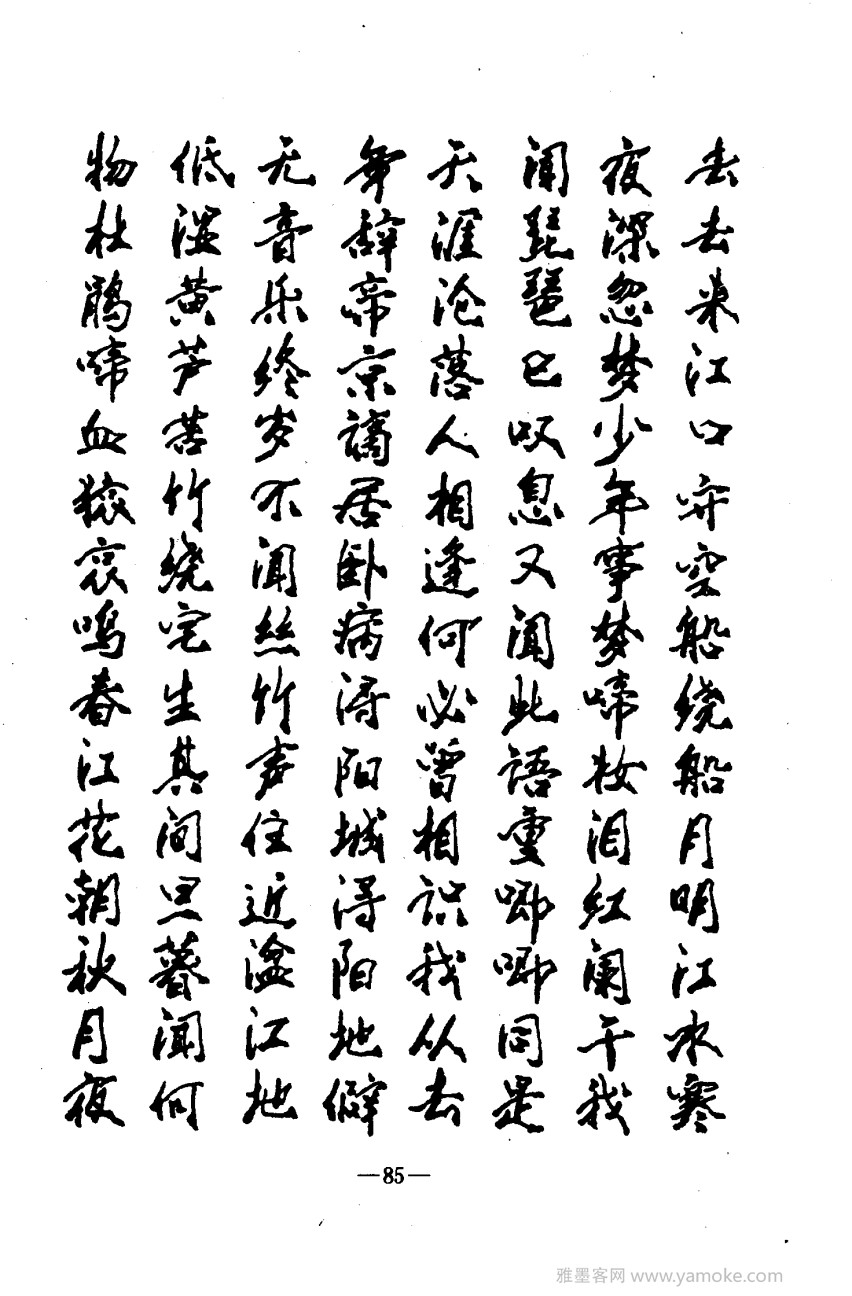 去去来江口守空船绕船月明江水寒
夜深忽梦少年事梦啼妆泪红阑干我
闻琵琶已叹息又闻此语重唧唧同是
天涯沦落人相逢何必曾相识我从去
年辞帝京谪居卧病浔阳城浔阳地僻
无音乐终岁不闻絲竹声住近湓江地
低湿黄芦苦竹绕宅生其间旦暮闻何
物杜鹃啼血猿哀鸣春江花朝秋月夜
—85—
雅墨客网 www.yamoke.com